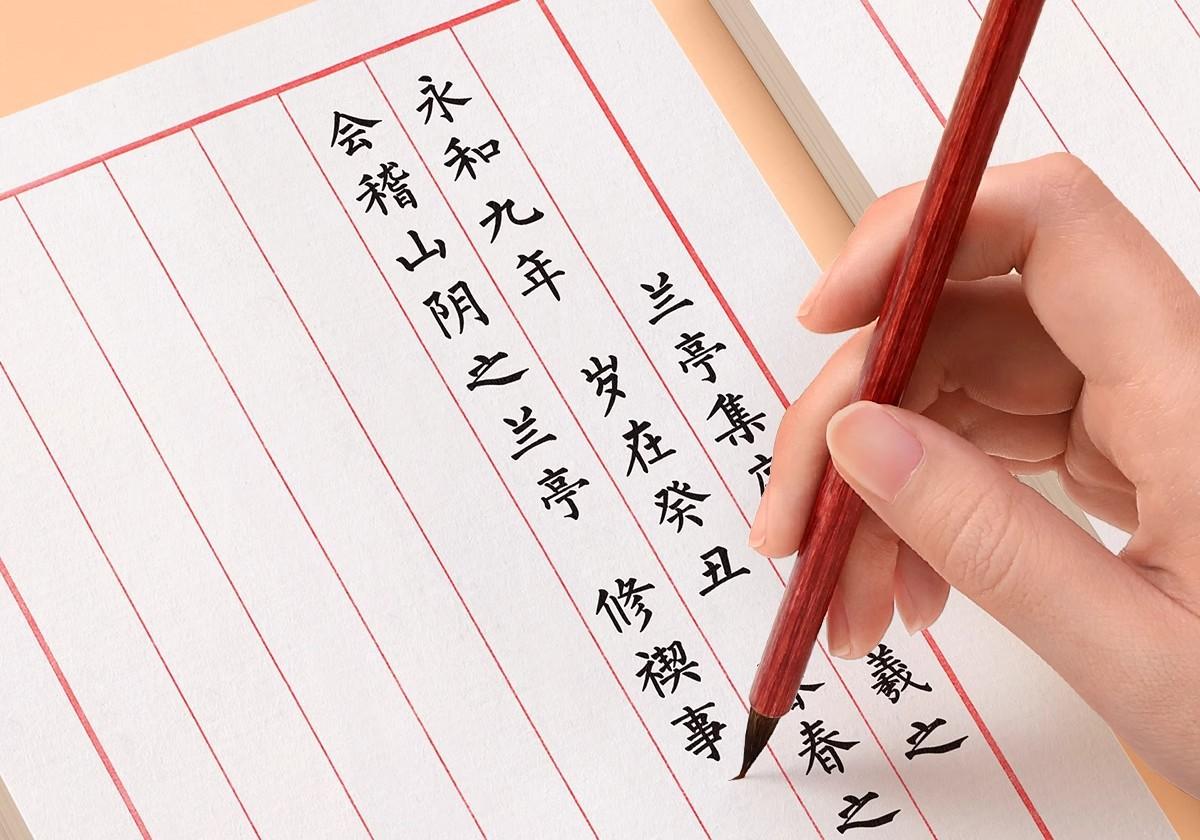 兰亭集 羲之
永和九年 岁在癸丑 春之
会稽山阴之兰亭 修禊事